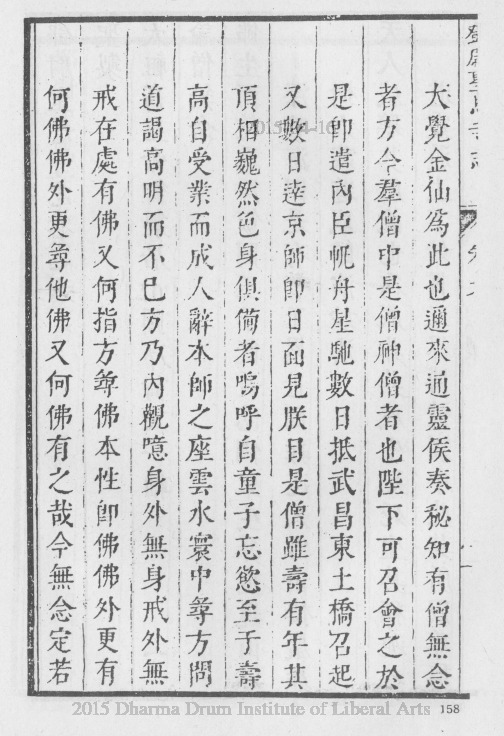 大覺金仙為此也邇來通靈侯奏秘知有僧無念
者方今羣僧中是僧神僧者也陛下可召會之於
是卽遣內臣帆舟星馳數日抵武昌東土橋召起
又數日達京師卽日面見朕目是僧雖壽有年其
頂相巍然色身俱備者嗚呼自童子忘慾至于壽
高自受業而成人辭本師之座雲水寰中尋方問
道謁高明而不已方乃內觀噫身外無身戒外無
戒在處有佛又何指方尋佛本性卽佛佛外更有
何佛佛外更尋他佛又何佛有之哉今無念定若
158
2015 Dharma Drum Institute of Liberal Arts